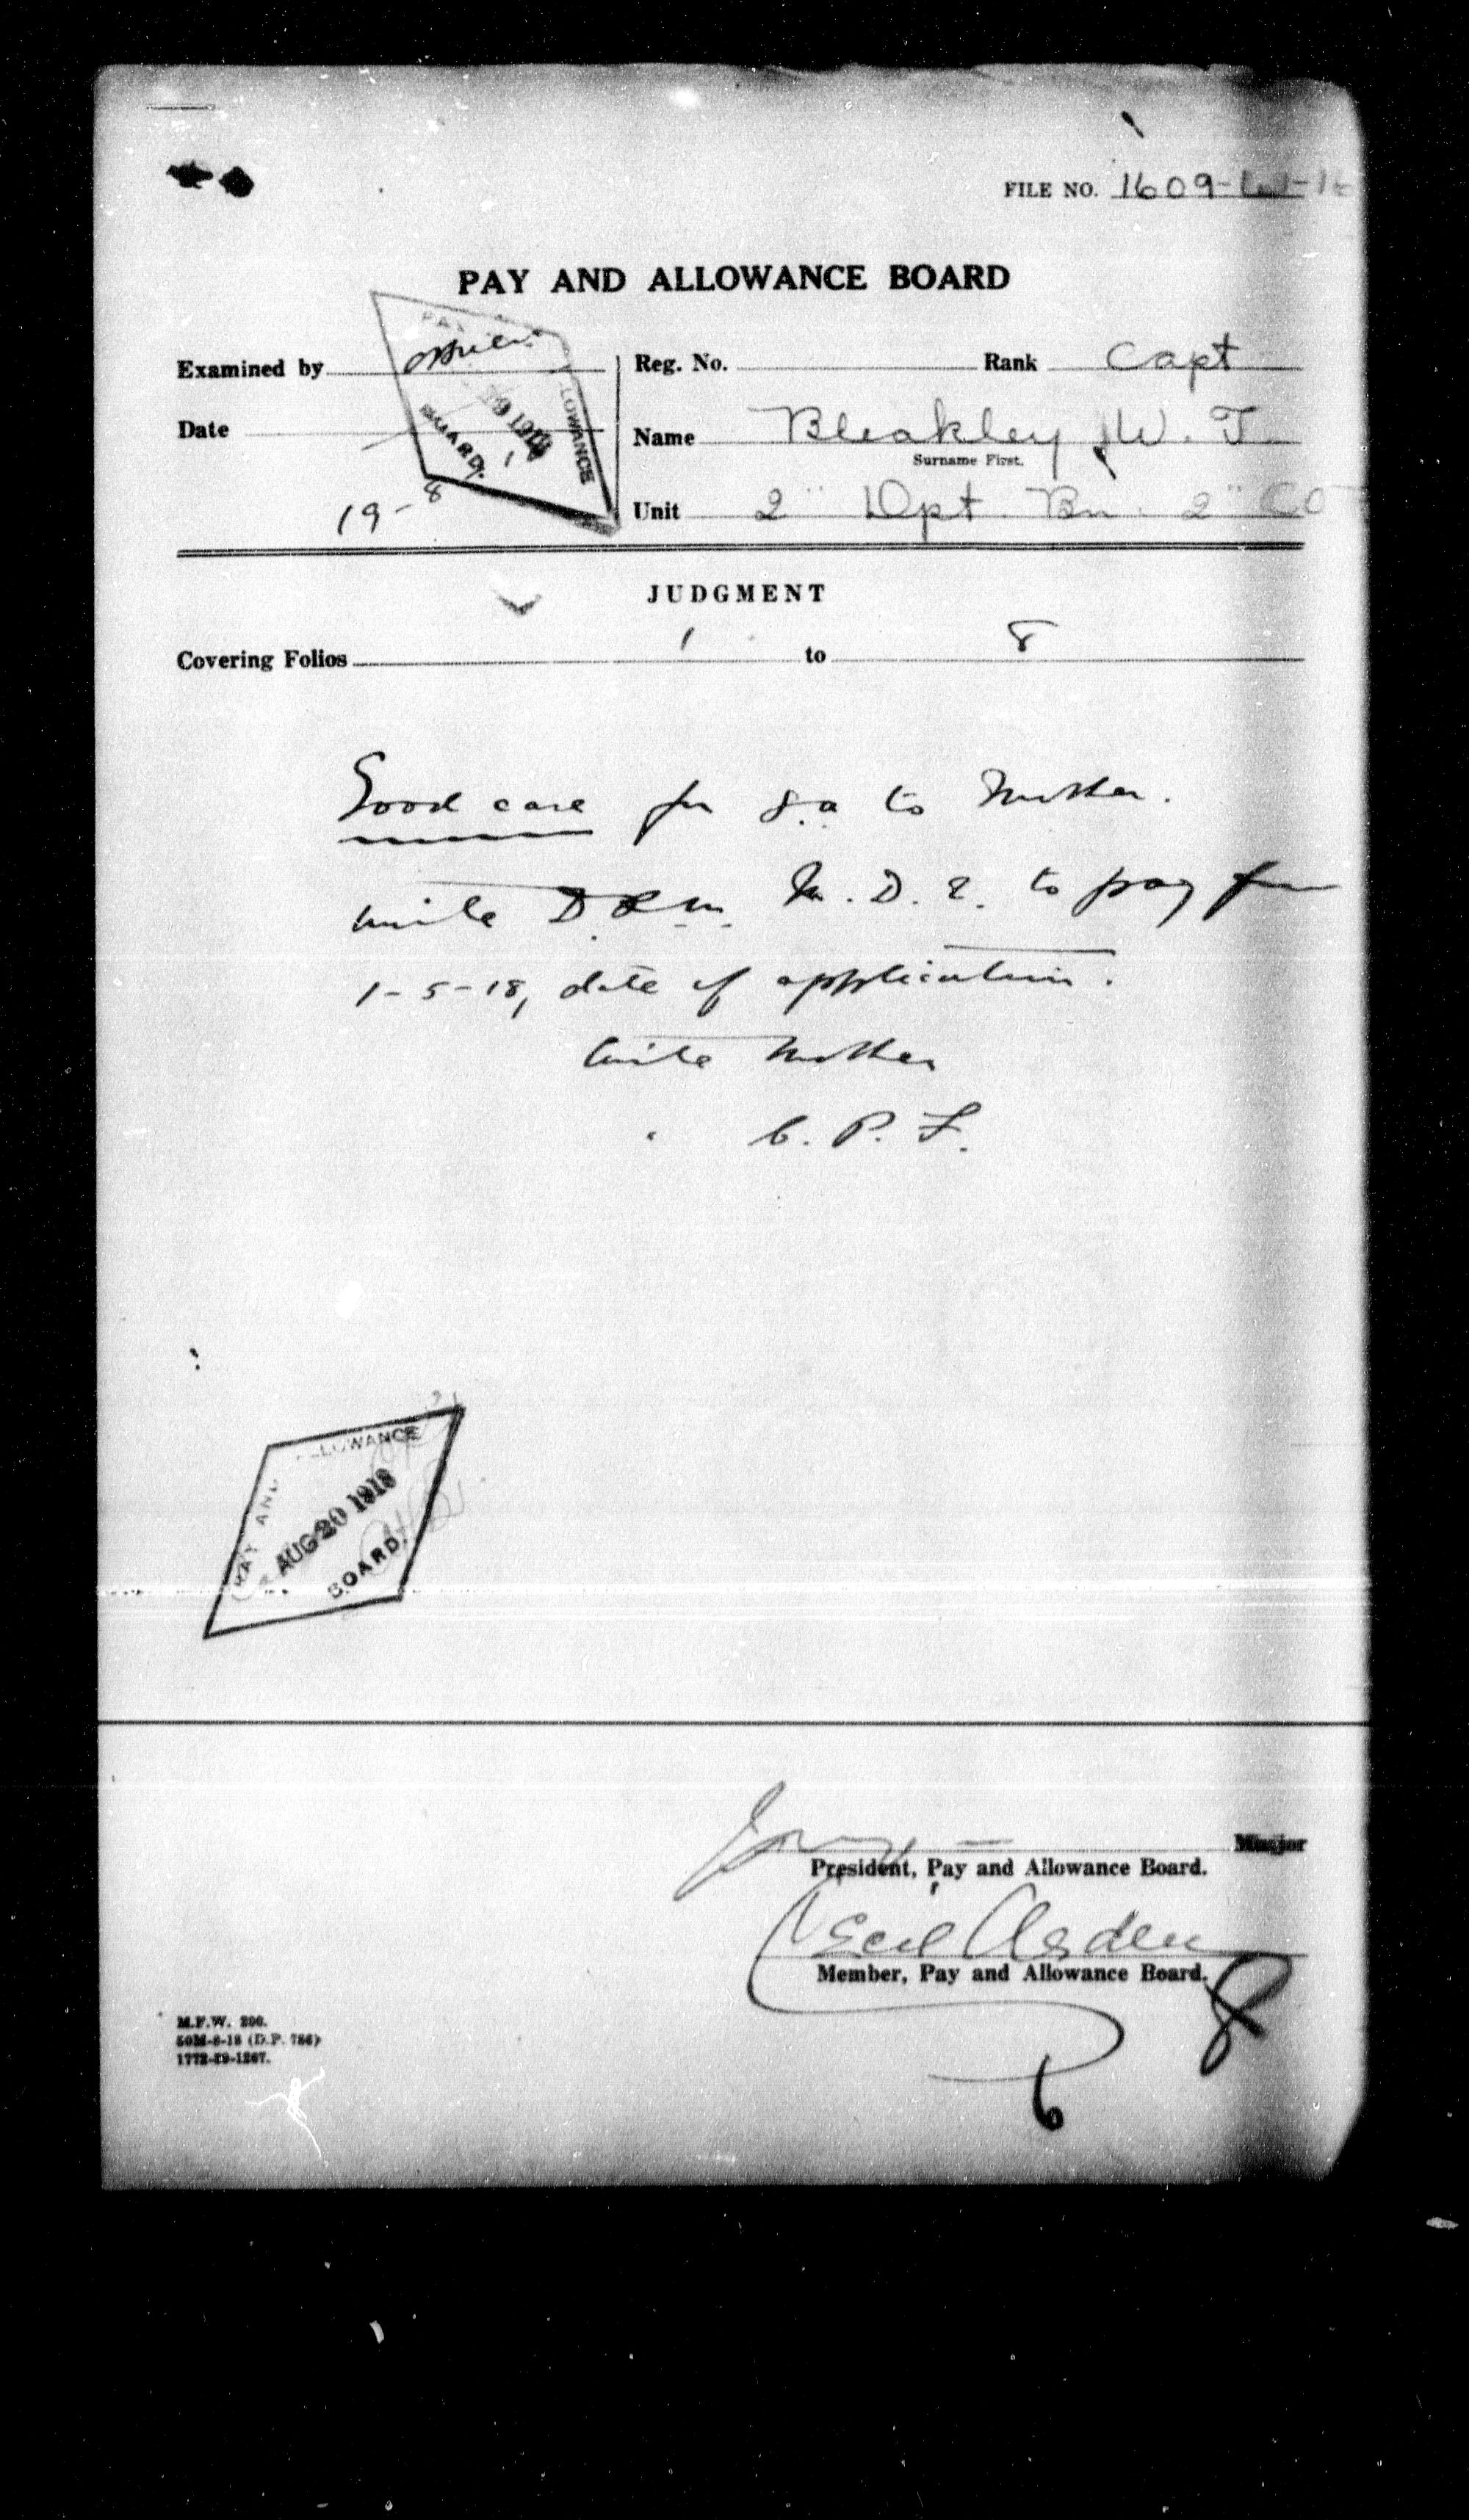 FILE NO. 1609-
PAY AND ALLOWANCE BOARD
Examined by O'Brien
Reg. No. Rank Capt
Date 19-8
Name Bleakley, W. J.
Surname First.
Unit 2" Dpt. Bn. 2"
PAY ALLOWANCE BOARD.
JUDGMENT
Covering Folios 1 to 8
Good case for S.A to Mother.
Write D.R.M. M.D.2. to pay from
1-5-18, date of application.
Write Mother
" C.P.F.
PAY AND ALLOWANCE
AUG 20 1918
BOARD.
Major
President, Pay and Allowance Board.
Member, Pay and Allowance Board.
8
6
M.F.W. 200.
50M-6-18 (D.P. 786)
1772-39-1267.